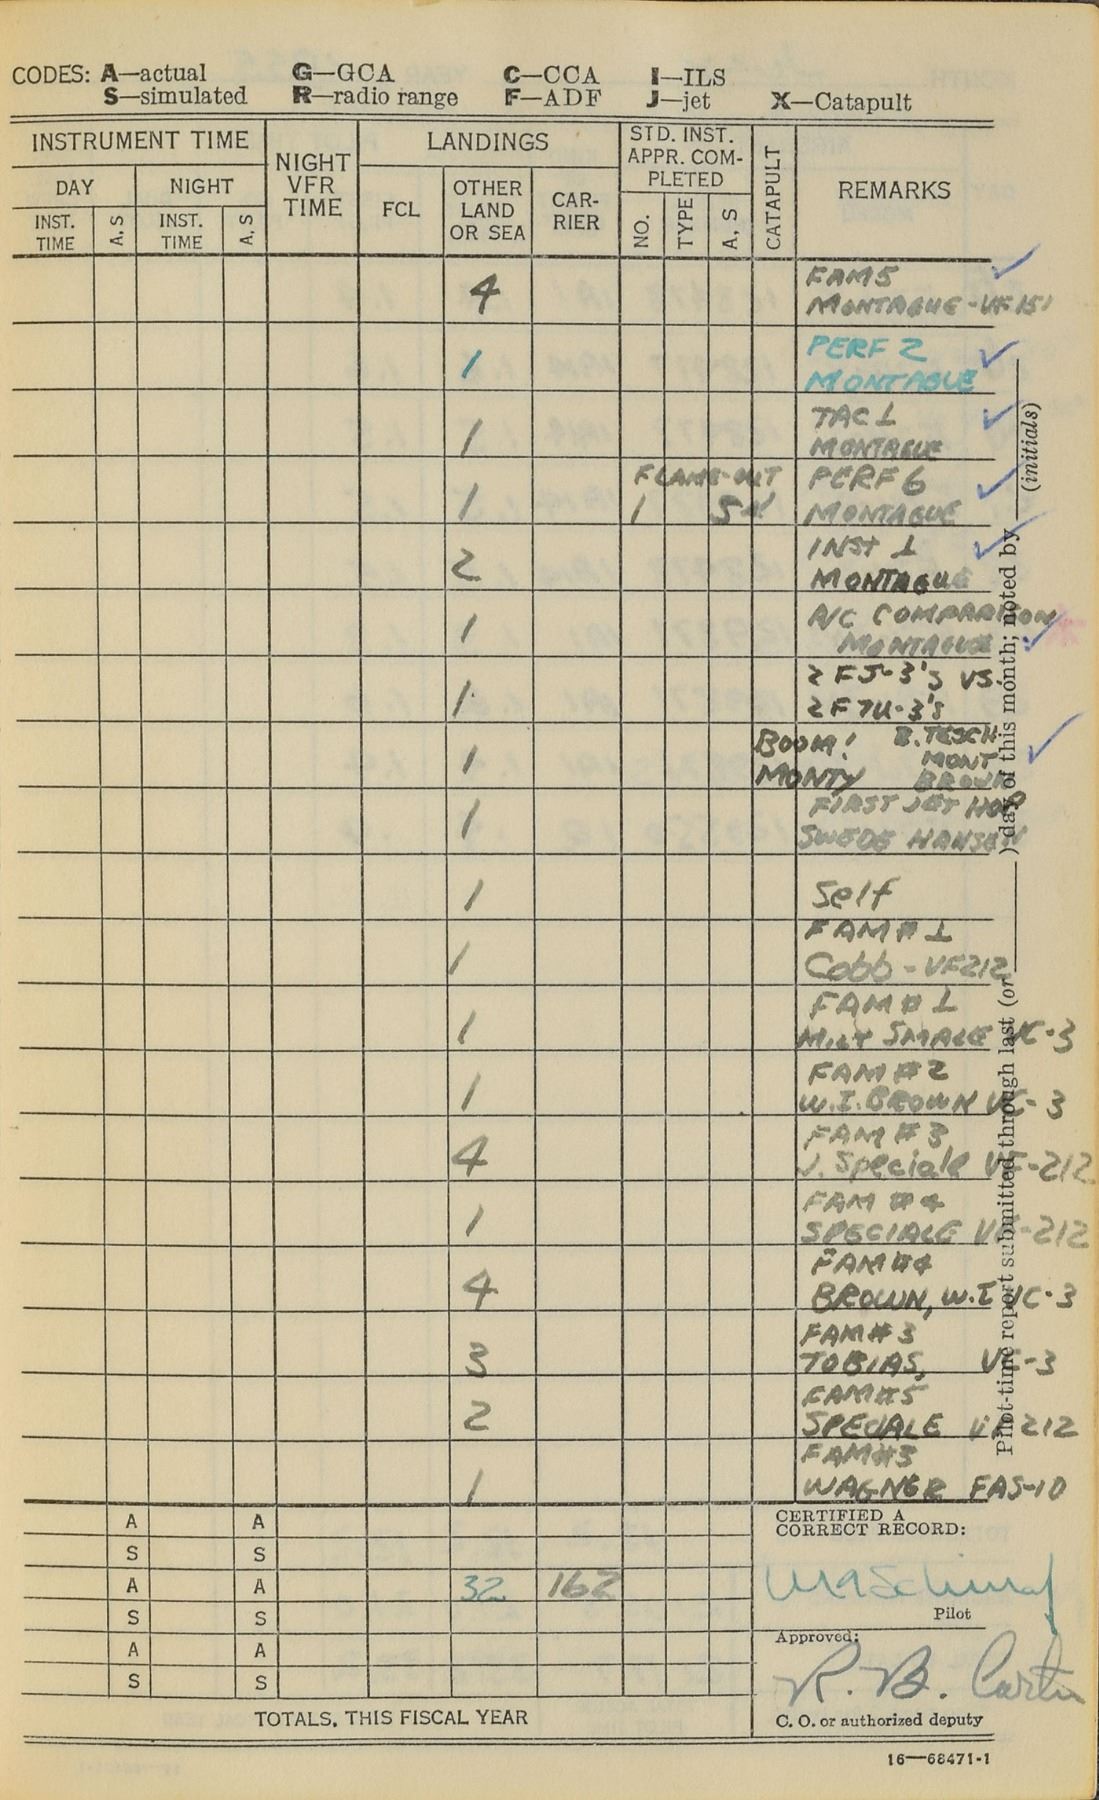 CODES: A—actual G—GCA C—CCA I—ILS
S—simulated R—radio range F—ADF J—jet X—Catapult
INSTRUMENT TIME NIGHT VFR TIME LANDINGS STD. INST. APPR. COM-PLETED CATAPULT REMARKS
DAY NIGHT FCL OTHER LAND OR SEA CAR-RIER NO. TYPE A, S
INST. TIME A, S INST. TIME A, S
4 FAM 5
MONTAGUE - VF 151
1 PERF 2
MONTAGUE
1 TAC 1
MONTAGUE
FLAME-OUT PERF 6
1 1 MONTAGUE
2 INST 1
MONTAGUE
1 A/C COMPARISON
MONTAGUE
1 2 FJ-3's VS.
2 F7U-3's
1 BOOM! B. TESCH
MONT
MONTY BROWN
1 FIRST JET HOP
SWEDE HANSEN
1 Self
1 FAM # 1
Cobb - VF212
1 FAM # 1
MILT SMALE VC-3
1 FAM # 2
W.I. BROWN VC-3
4 FAM # 3
J. Speciale VF-212
1 FAM # 4
SPECIALE VF-212
4 FAM #4
BROWN, W.I VC-3
3 FAM # 3
TOBIAS, VC-3
2 FAM #5
SPECIALE VF 212
1 FAM #3
WAGNER FAS-10
Pilot-time report submitted through last (or ) day of this month; noted by (initials)
A A CERTIFIED A
S S CORRECT RECORD:
A A 32 162
S S Pilot
A A Approved:
S S R. B. Carter
TOTALS, THIS FISCAL YEAR C. O. or authorized deputy
16—68471-1